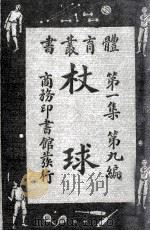 體育叢書
第一集 第九編
杖球
商務印書館發行